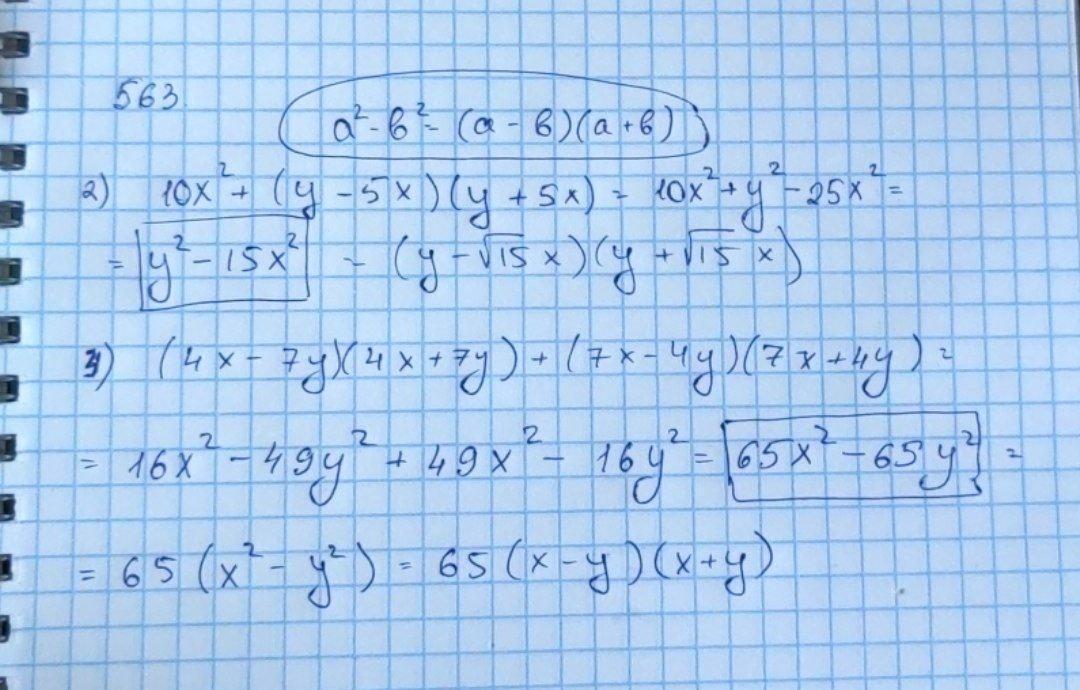 563.
a² - в² = (a - в)(a + в)
2) 10x² + (y - 5x)(y + 5x) = 10x² + y² - 25x² =
= y² - 15x² = (y - √15 x)(y + √15 x)
4) (4x - 7y)(4x + 7y) + (7x - 4y)(7x + 4y) =
= 16x² - 49y² + 49x² - 16y² = 65x² - 65y² =
= 65(x² - y²) = 65(x - y)(x + y)